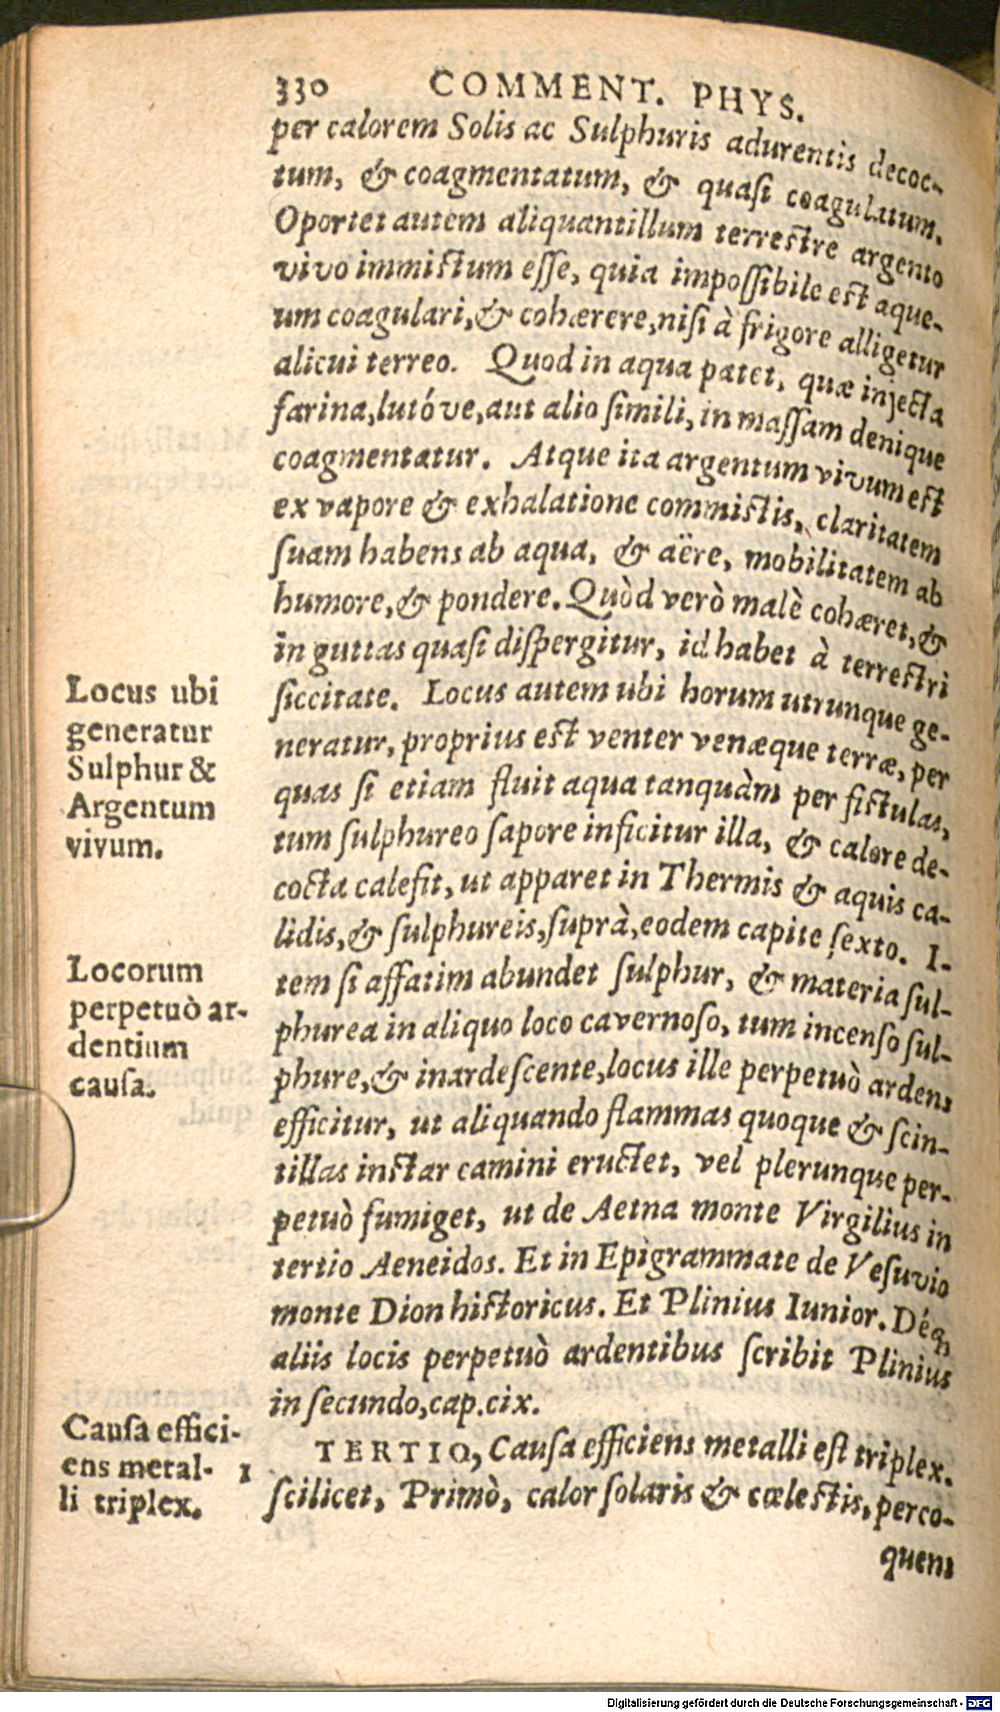 330 COMMENT. PHYS.
per calorem Solis ac Sulphuris adurentis decoc-
tum, & coagmentatum, & quasi coagulatum.
Oportet autem aliquantillum terrestre argento
vivo immistum esse, quia impossibile est aque-
um coagulari, & cohærere, nisi à frigore alligetur
alicui terreo. Quod in aqua patet, quæ injecta
farina, lutóve, aut alio simili, in massam denique
coagmentatur. Atque ita argentum vivum est
ex vapore & exhalatione commistis, claritatem
suam habens ab aqua, & aëre, mobilitatem ab
humore, & pondere. Quòd verò malè cohæret, &
in guttas quasi dispergitur, id habet à terrestri
siccitate. Locus autem ubi horum utrunque ge-
neratur, proprius est venter venæque terræ, per
quas si etiam fluit aqua tanquàm per fistulas,
tum sulphureo sapore inficitur illa, & calore de-
cocta calefit, ut apparet in Thermis & aquis ca-
lidis, & sulphureis, suprà, eodem capite sexto. I-
tem si affatim abundet sulphur, & materia sul-
phurea in aliquo loco cavernoso, tum incenso sul-
phure, & inardescente, locus ille perpetuò ardens
efficitur, ut aliquando flammas quoque & scin-
tillas instar camini eructet, vel plerunque per-
petuò fumiget, ut de Aetna monte Virgilius in
tertio Aeneidos. Et in Epigrammate de Vesuvio
monte Dion historicus. Et Plinius Iunior. Déq;
aliis locis perpetuò ardentibus scribit Plinius
in secundo, cap. cix.
TERTIO, Causa efficiens metalli est triplex.
scilicet, Primò, calor solaris & cœlestis, perco-
quens
Locus ubi
generatur
Sulphur &
Argentum
vivum.
Locorum
perpetuò ar-
dentium
causa.
Causa effici-
ens metal- 1
li triplex.
Digitalisierung gefördert durch die Deutsche Forschungsgemeinschaft - DFG